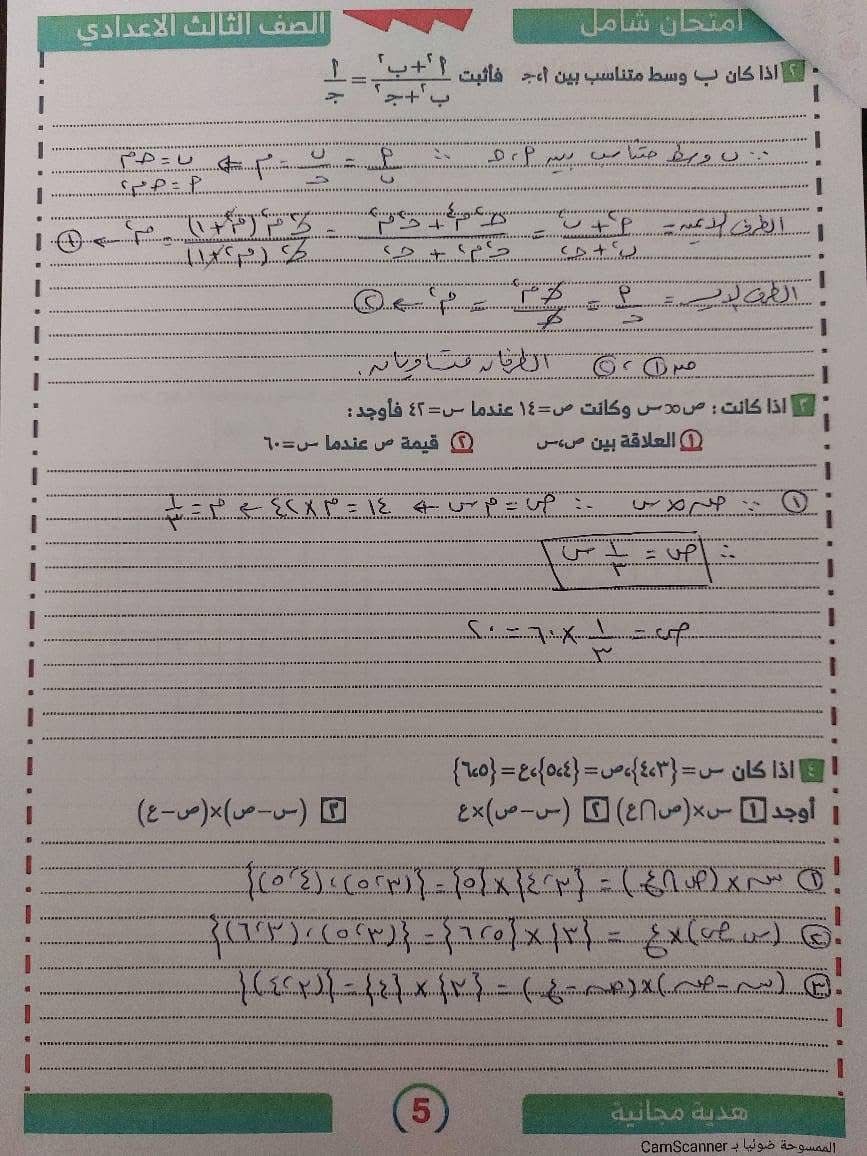 امتحان شامل
الصف الثالث الاعدادي
٢ اذا كان ب وسط متناسب بين أ،ج فأثبت أ٢+ب٢ / ب٢+ج٢ = أ / ج
∵ ب وسط متناسب بين أ، ج ∴ أ/ب = ب/ج = م ← ب = ج م
أ = ج م٢
الطرف الأيمن = أ٢+ب٢ / ب٢+ج٢ = ج٢م٤ + ج٢م٢ / ج٢م٢ + ج٢ = ج٢م٢(م٢+١) / ج٢(م٢+١) = م٢ ← ①
الطرف الأيسر = أ/ج = ج م٢/ج = م٢ ← ②
من ①، ② الطرفان متساويان.
٣ اذا كانت : ص∝س وكانت ص=١٤ عندما س=٤٢ فأوجد:
① العلاقة بين ص،س ② قيمة ص عندما س=٦٠
① ∵ ص∝س ∴ ص = م س ← ١٤ = م×٤٢ ← م = ١/٣
∴ ص = ١/٣ س
ص = ١/٣ × ٦٠ = ٢٠
٤ اذا كان س={٤،٣}،ص={٥،٤}،ع={٦،٥}
أوجد ١ س×(ص∩ع) ٢ (س-ص)×ع ٣ (س-ص)×(ص-ع)
① س×(ص∩ع) = {٤،٣}×{٥} = {(٣،٥)،(٤،٥)}
② (س-ص)×ع = {٣}×{٦،٥} = {(٣،٥)،(٣،٦)}
③ (س-ص)×(ص-ع) = {٣}×{٤} = {(٣،٤)}
5
هدية مجانية
الممسوحة ضوئيا بـ CamScanner